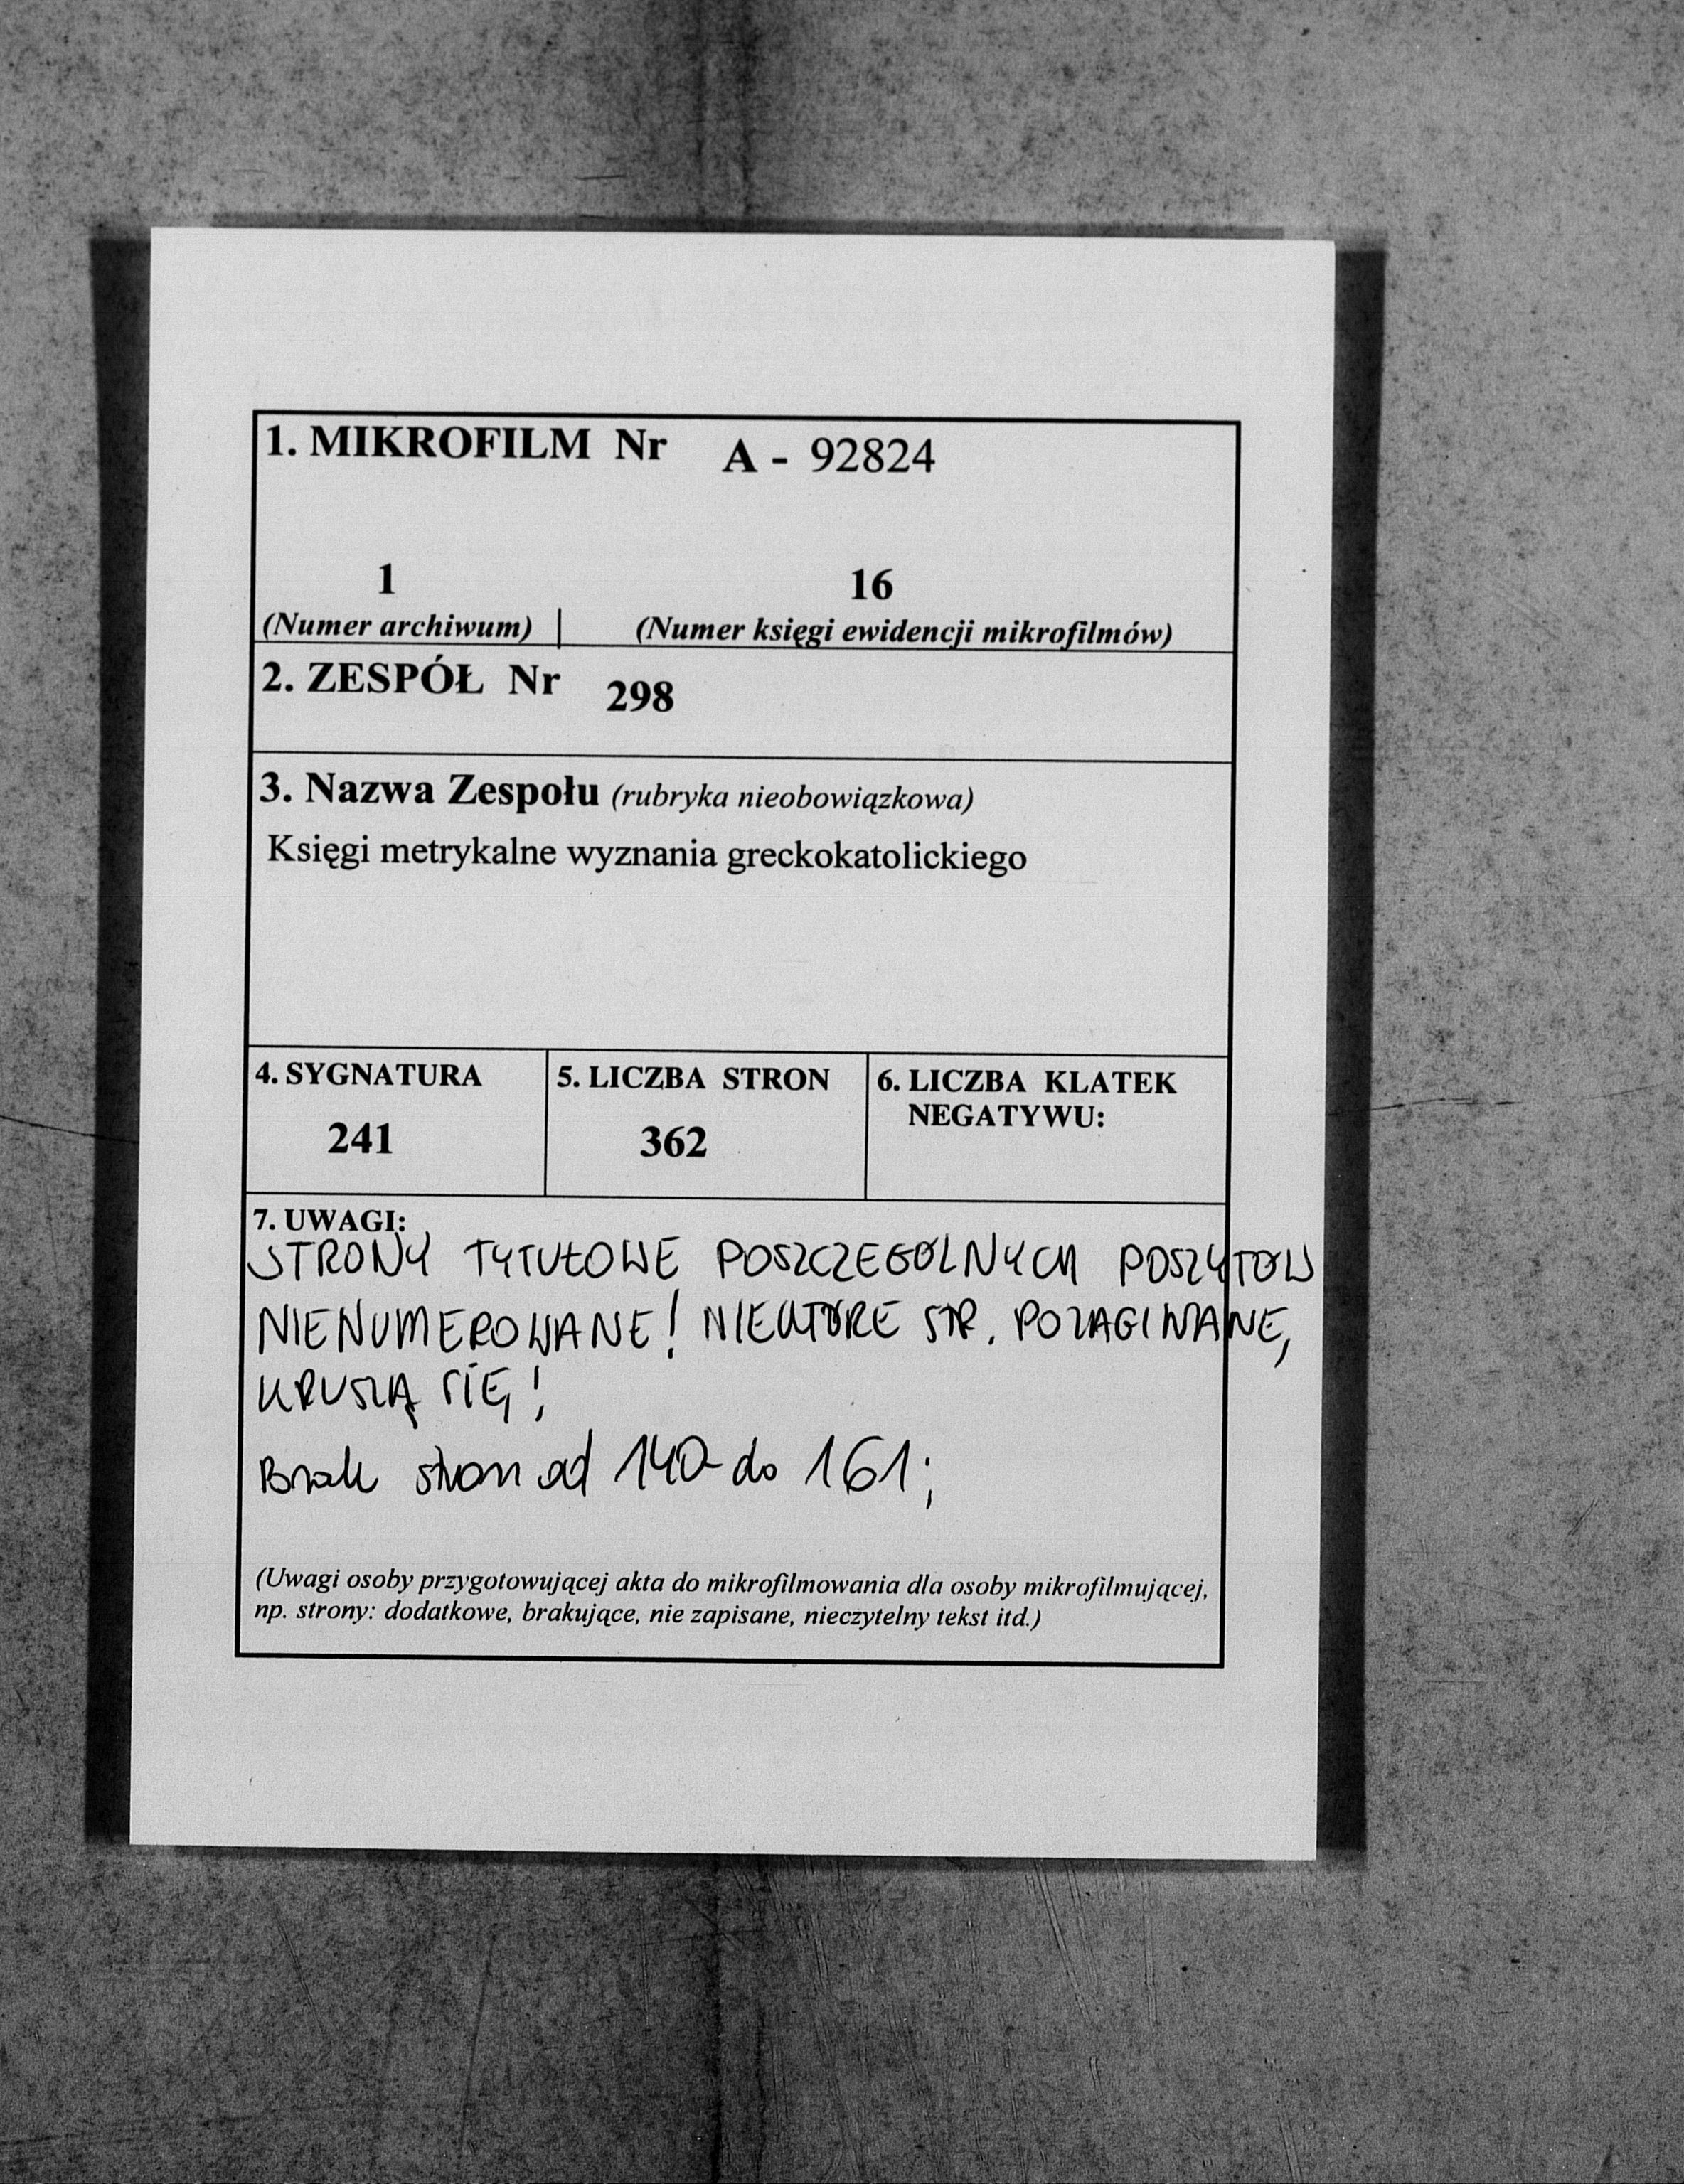 1. MIKROFILM Nr A - 92824
1 16
(Numer archiwum) (Numer księgi ewidencji mikrofilmów)
2. ZESPÓŁ Nr 298
3. Nazwa Zespołu (rubryka nieobowiązkowa)
Księgi metrykalne wyznania greckokatolickiego
4. SYGNATURA
241
5. LICZBA STRON
362
6. LICZBA KLATEK
NEGATYWU:
7. UWAGI:
STRONY TYTUŁOWE POSZCZEGÓLNYCH POSZYTÓW
NIENUMEROWANE! NIEKTÓRE STR. POZAGINANE,
KRUSZĄ SIĘ!
Brak stron od 140 do 161;
(Uwagi osoby przygotowującej akta do mikrofilmowania dla osoby mikrofilmującej,
np. strony: dodatkowe, brakujące, nie zapisane, nieczytelny tekst itd.)